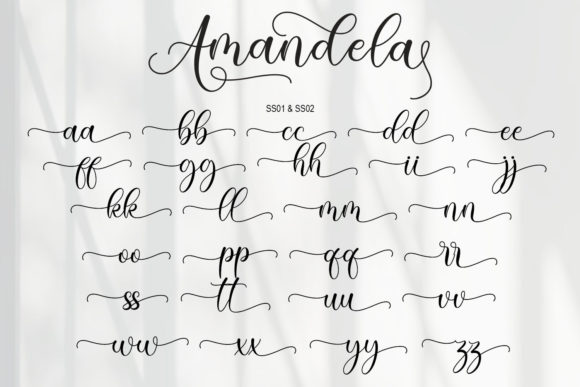 Amandela
SS01 & SS02
aa bb cc dd ee
ff gg hh ii jj
kk ll mm nn
oo pp qq rr
ss tt uu vv
ww xx yy zz